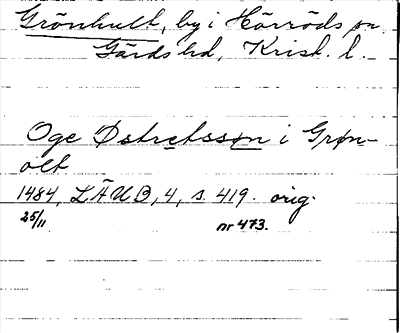 Grönhult, by i Hörröds sn
Gärds hd, Krist. l.
Oge Østretssøn i Grøn-
olt
1484, LÄUB, 4, s. 419. orig.
25/11 nr 473.